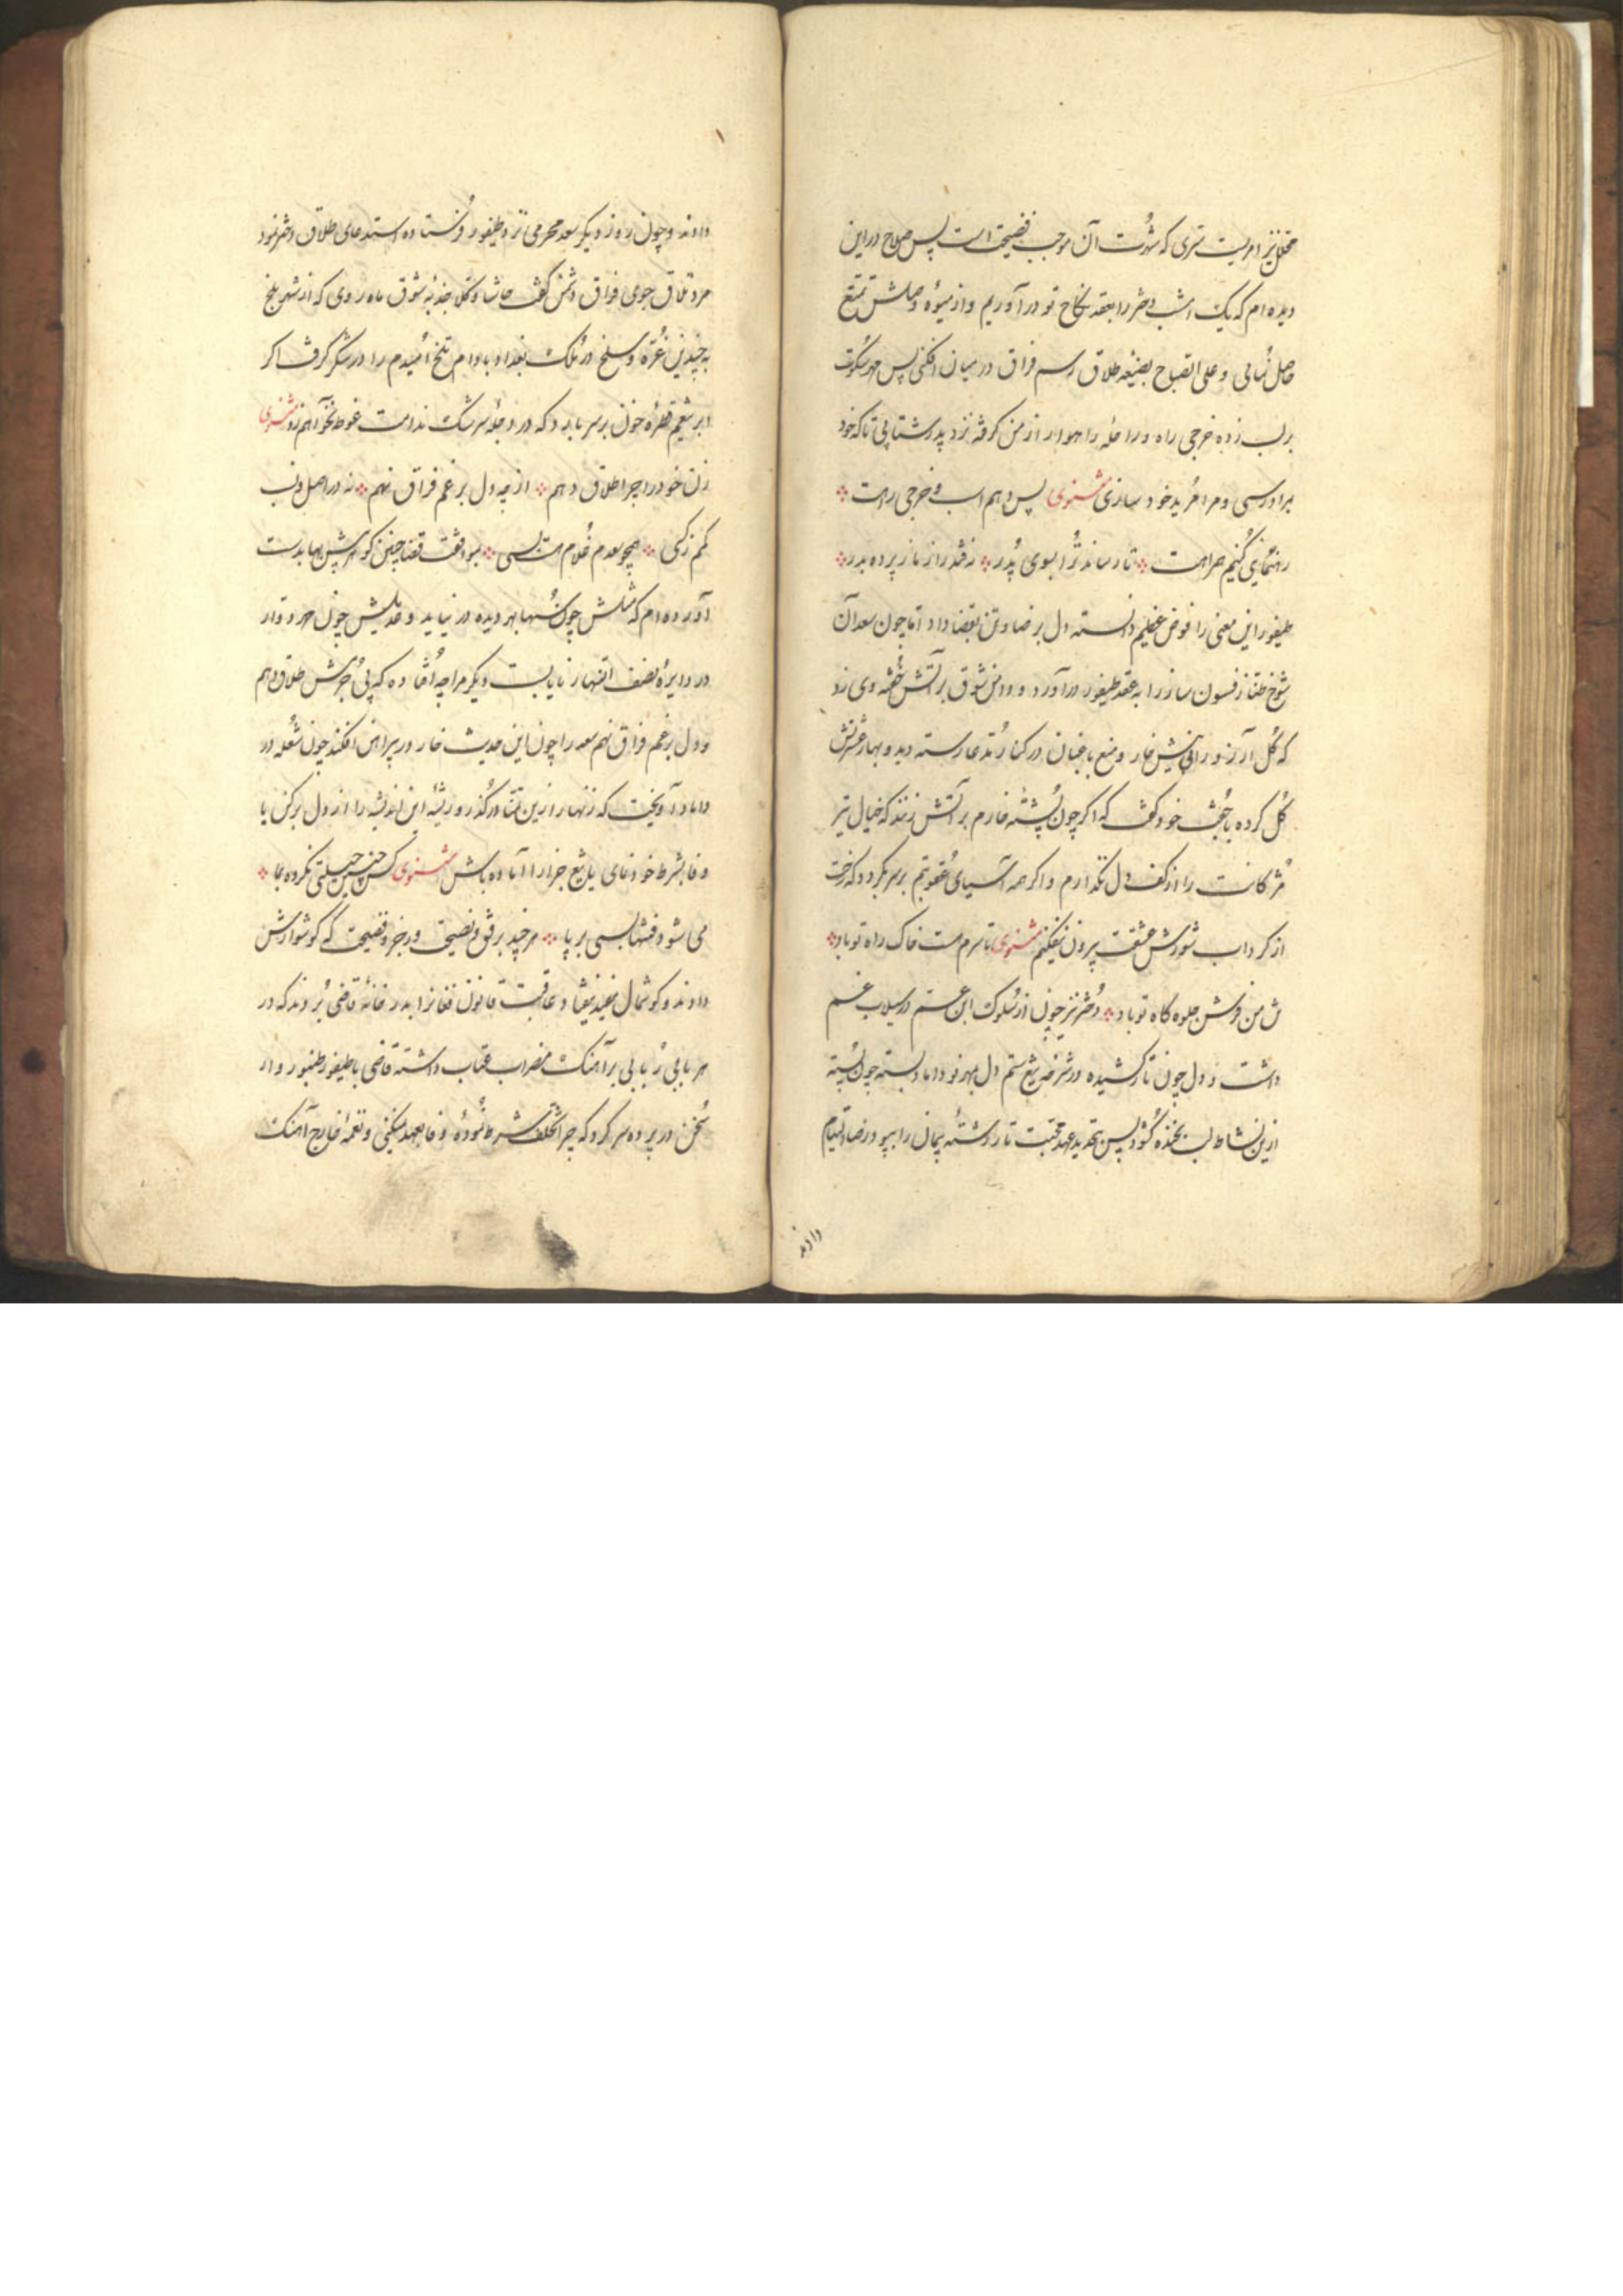 محلل نیز امریست سری که شهرت آن موجب فضیحت است پس صلاح در این
دیده ام که یک امشب دختر را بعقد نکاح تو درآوریم و از میوهٔ وصلش تمتع
حاصل نمائی و علی الصباح بصیغه طلاق رسم فراق در میان افکنی پس مهر سکوت
برلب زده خرجی راه و راحلهٔ راهوار از من گرفته نزد پدر شتابی تا که خود
برادرسی و مرا مرید خود سازی مثنوی پس دهم اسب و خرجی راهت
رهنمائی کنیم همراهت تا رساند ترا بسوی پدر نه فتد راز ما ز پرده بدر
طیفور این معنی را فوض عظیم دانسته دل برضا و تن بقضا داد اما چون سعد آن
شوخ طناز فسون ساز را به عقد طیفور درآورد و دامن شوق بر آتش خفته وی زد
که گل آرزو را بی نیش خار و منع باغبان در کنار مدعا رسته دید و بهار عشرتش
گل کرده با جفت خود گفت که اگر چون پشتهٔ خارم بر آتش زنند که خیال تیر
مژگانت را از کف دل نگذارم و اگر همه آسیای عقوبتم بر سر بگردد که رخت
از گرداب شورش عشقت بیرون نیفکنم مثنوی تا سرم هست خاک راه تو باد
من فرش جلوه گاه تو باد دختر نیز چون از سلوک ابن عم در سیلاب غم
داشت و دل چون تار کشیده در تیغ ستم دل بمهر نو داماد بسته چون پسته
ازین نشاط لب بخنده گشود پس بتجدید عهد محبت تار رشتهٔ پیمان را
دادند
دادند و چون روز دیگر سعد محرمی نزد طیفور فرستاده استدعای طلاق دختر نمود
مرد تلاق جوی فراق دشمن گفت حاشا و کلا جذبه شوق ماه روی که از شهر بلخ
به چندین غره و سلخ در ملک بغداد بادام تلخ امیدم را در شکر گرفت اگر
ابر تیغم قطرهٔ خون بر سر بارد که در دجلهٔ سرشک ندامت غوطه نخواهم زد مثنوی
زن خود را چرا طلاق دهم از چه دل بر غم فراق نهم نه در اصل و نسب
کم ز کسی همچو سعدم غلام هست بسی بموافقت قضا چنین گوهر بیش بها بدست
آورده ام که مثلش چون سها بهر دیده در نیاید و عدیلش چون مهر دوار
در دایرهٔ نصف النهار نایابست دیگر مرا چه افتاده که بی جرمش طلاق دهم
و دل بر غم فراق نهم سعد را چون این حدیث خار در پیراهن افکند چون شعله در
داماد آویخت که زنهار ازین تمنا درگذر و ریشه این اندیشه را از دل برکن یا
وفا بشرط خود نمای یا تیغ جزا را آماده باش مثنوی کس چنین حیلتی نکرده بما
می شود فتنها بسی بر پا هر چند برفق و نصیحت و زجر و فضیحت که گوشوارش
دادند و گوشمال مفید نیفتاد عاقبت قانون نغمه را بدر خانهٔ قاضی بردند که در
هر بابی ربابی بر آهنگ مضراب عتاب داشته قاضی با طیفور طنبور وار
سخن در پرده سر کرد که چرا تخلف شرط نموده وفا بعهد نمیکنی و نغمهٔ خارج آهنگ